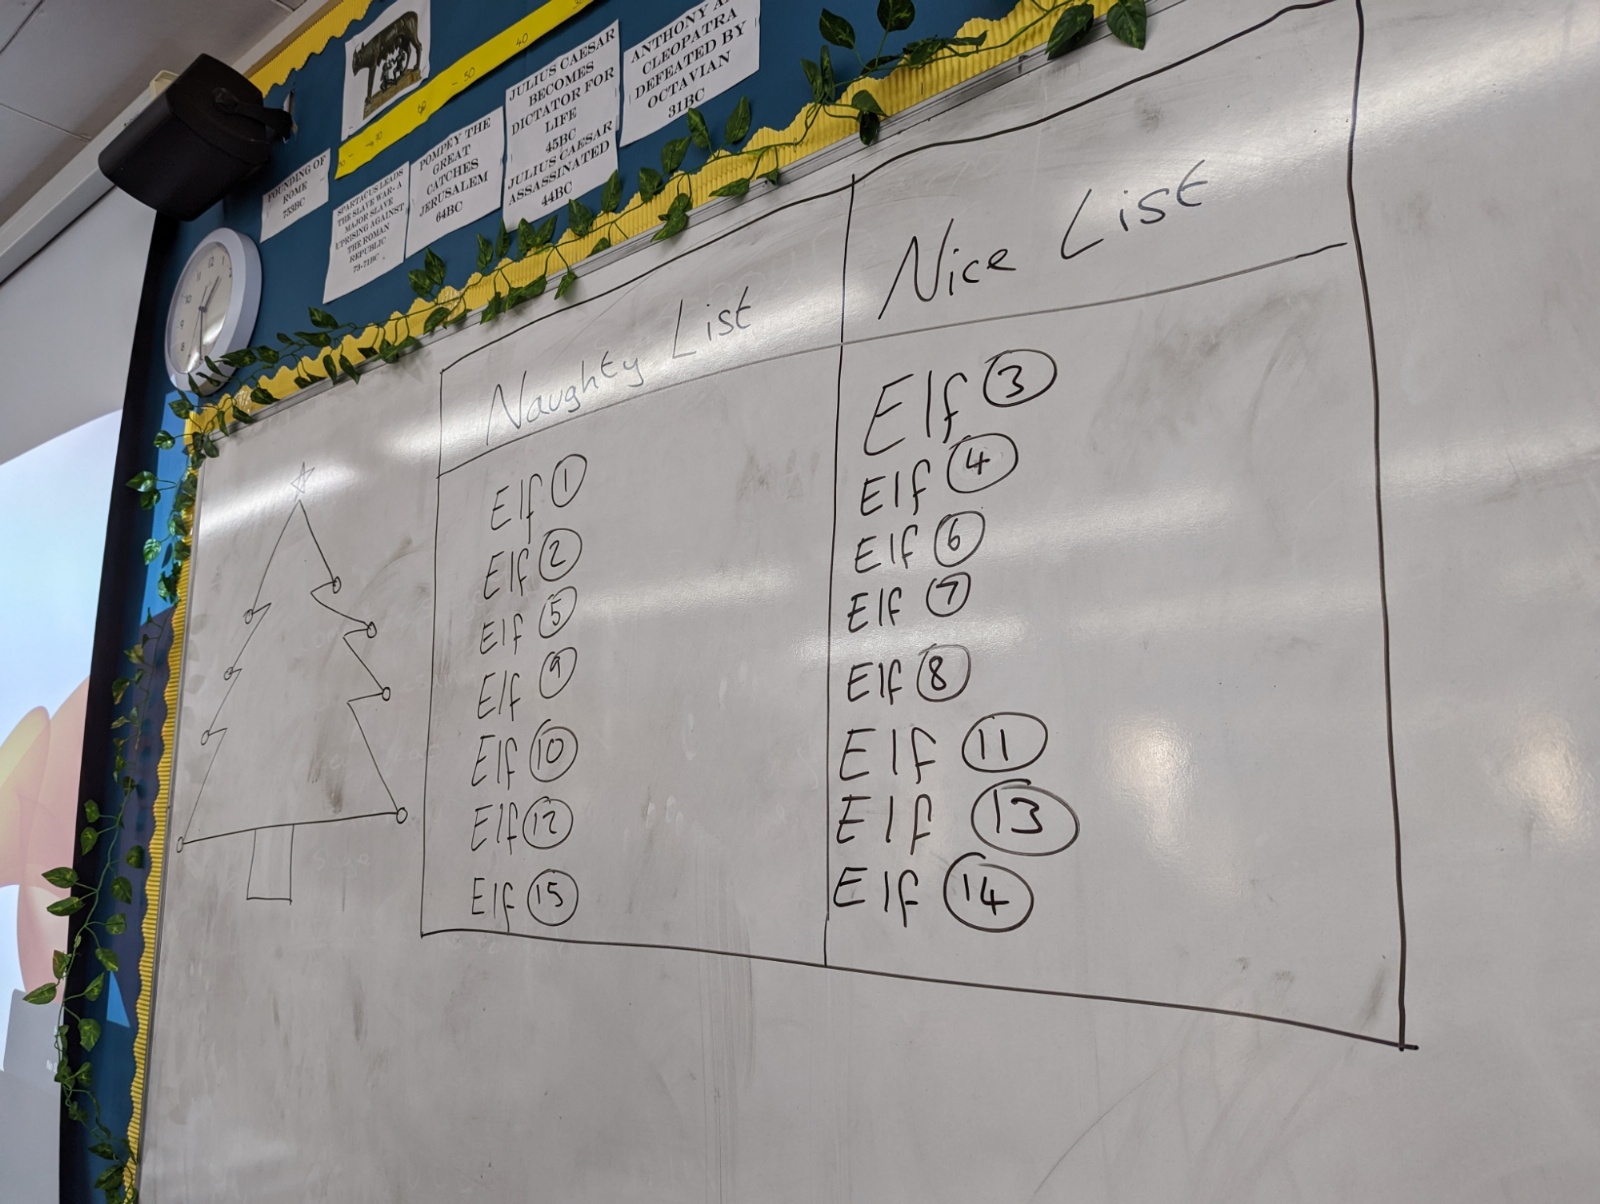 FOUNDING OF
ROME
753BC
SPARTACUS LEADS
THE SLAVE WAR- A
MAJOR SLAVE
UPRISING AGAINST
THE ROMAN
REPUBLIC
73-71BC
POMPEY THE
GREAT
CATCHES
JERUSALEM
64BC
JULIUS CAESAR
BECOMES
DICTATOR FOR
LIFE
45BC
JULIUS CAESAR
ASSASSINATED
44BC
ANTHONY
CLEOPATRA
DEFEATED BY
OCTAVIAN
31BC
40
50
Naughty List
Elf 1
Elf 2
Elf 5
Elf 9
Elf 10
Elf 12
Elf 15
Nice List
Elf 3
Elf 4
Elf 6
Elf 7
Elf 8
Elf 11
Elf 13
Elf 14